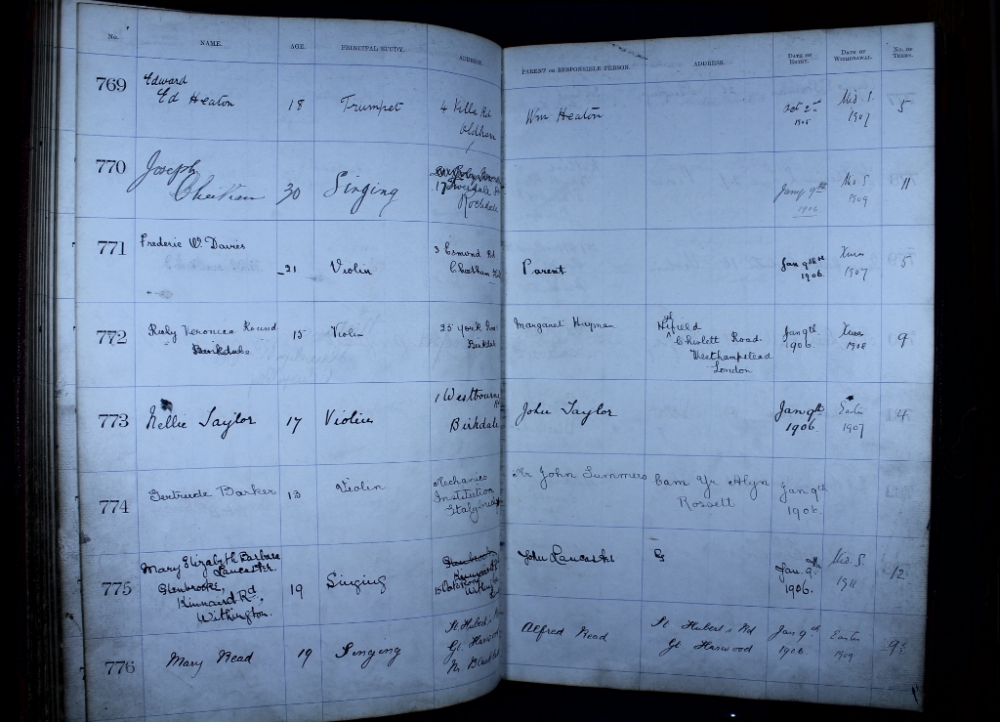 No. NAME. AGE. PRINCIPAL STUDY. ADDRESS. PARENT OR RESPONSIBLE PERSON. ADDRESS. DATE OF ENTRY. DATE OF WITHDRAWAL. No. OF TERMS.
769 Edward
Ed Heaton 18 Trumpet 4 Villa Rd Wm Heaton Oct 2nd Mids 1907 5
Oldham
770 Joseph
30 Singing 17 Jany 9th 1906 Mids S. 1909 11
Rochdale
771 Frederic W. Davies
21 Violin 3 Esmond Rd Parent Jan 9th 1906. Xmas 1907 5
Cheetham Hill
772 Ruby Veronica Round 15 Violin 25 York Margaret Hayman Hifield Jan 9th 1906. Xmas 1908 9
Birkdale Birkdale Chislett Road.
Westhampstead
London
773 Nellie Taylor 17 Violin 1 Westbourne Rd John Taylor Jan 9th 1906. Easter 1907 4
Birkdale
774 Gertrude Barker 13 Violin Mechanics Mr John Summers Cam Yr Alyn Jan 9th 1906
Institution Rossett
Stalybridge
775 Mary Elizabeth Barbara John Lancaster
Lancaster. 19 Singing Jan. 9th 1906. Mids. S. 1911 12
Glenbrooke,
Kinnaird Rd,
Withington.
776 Mary Read 19 Singing St Hubert's Alfred Read St Hubert's Rd Jan 9th 1906 Easter 1909 9
Gt Harwood Gt Harwood
Nr